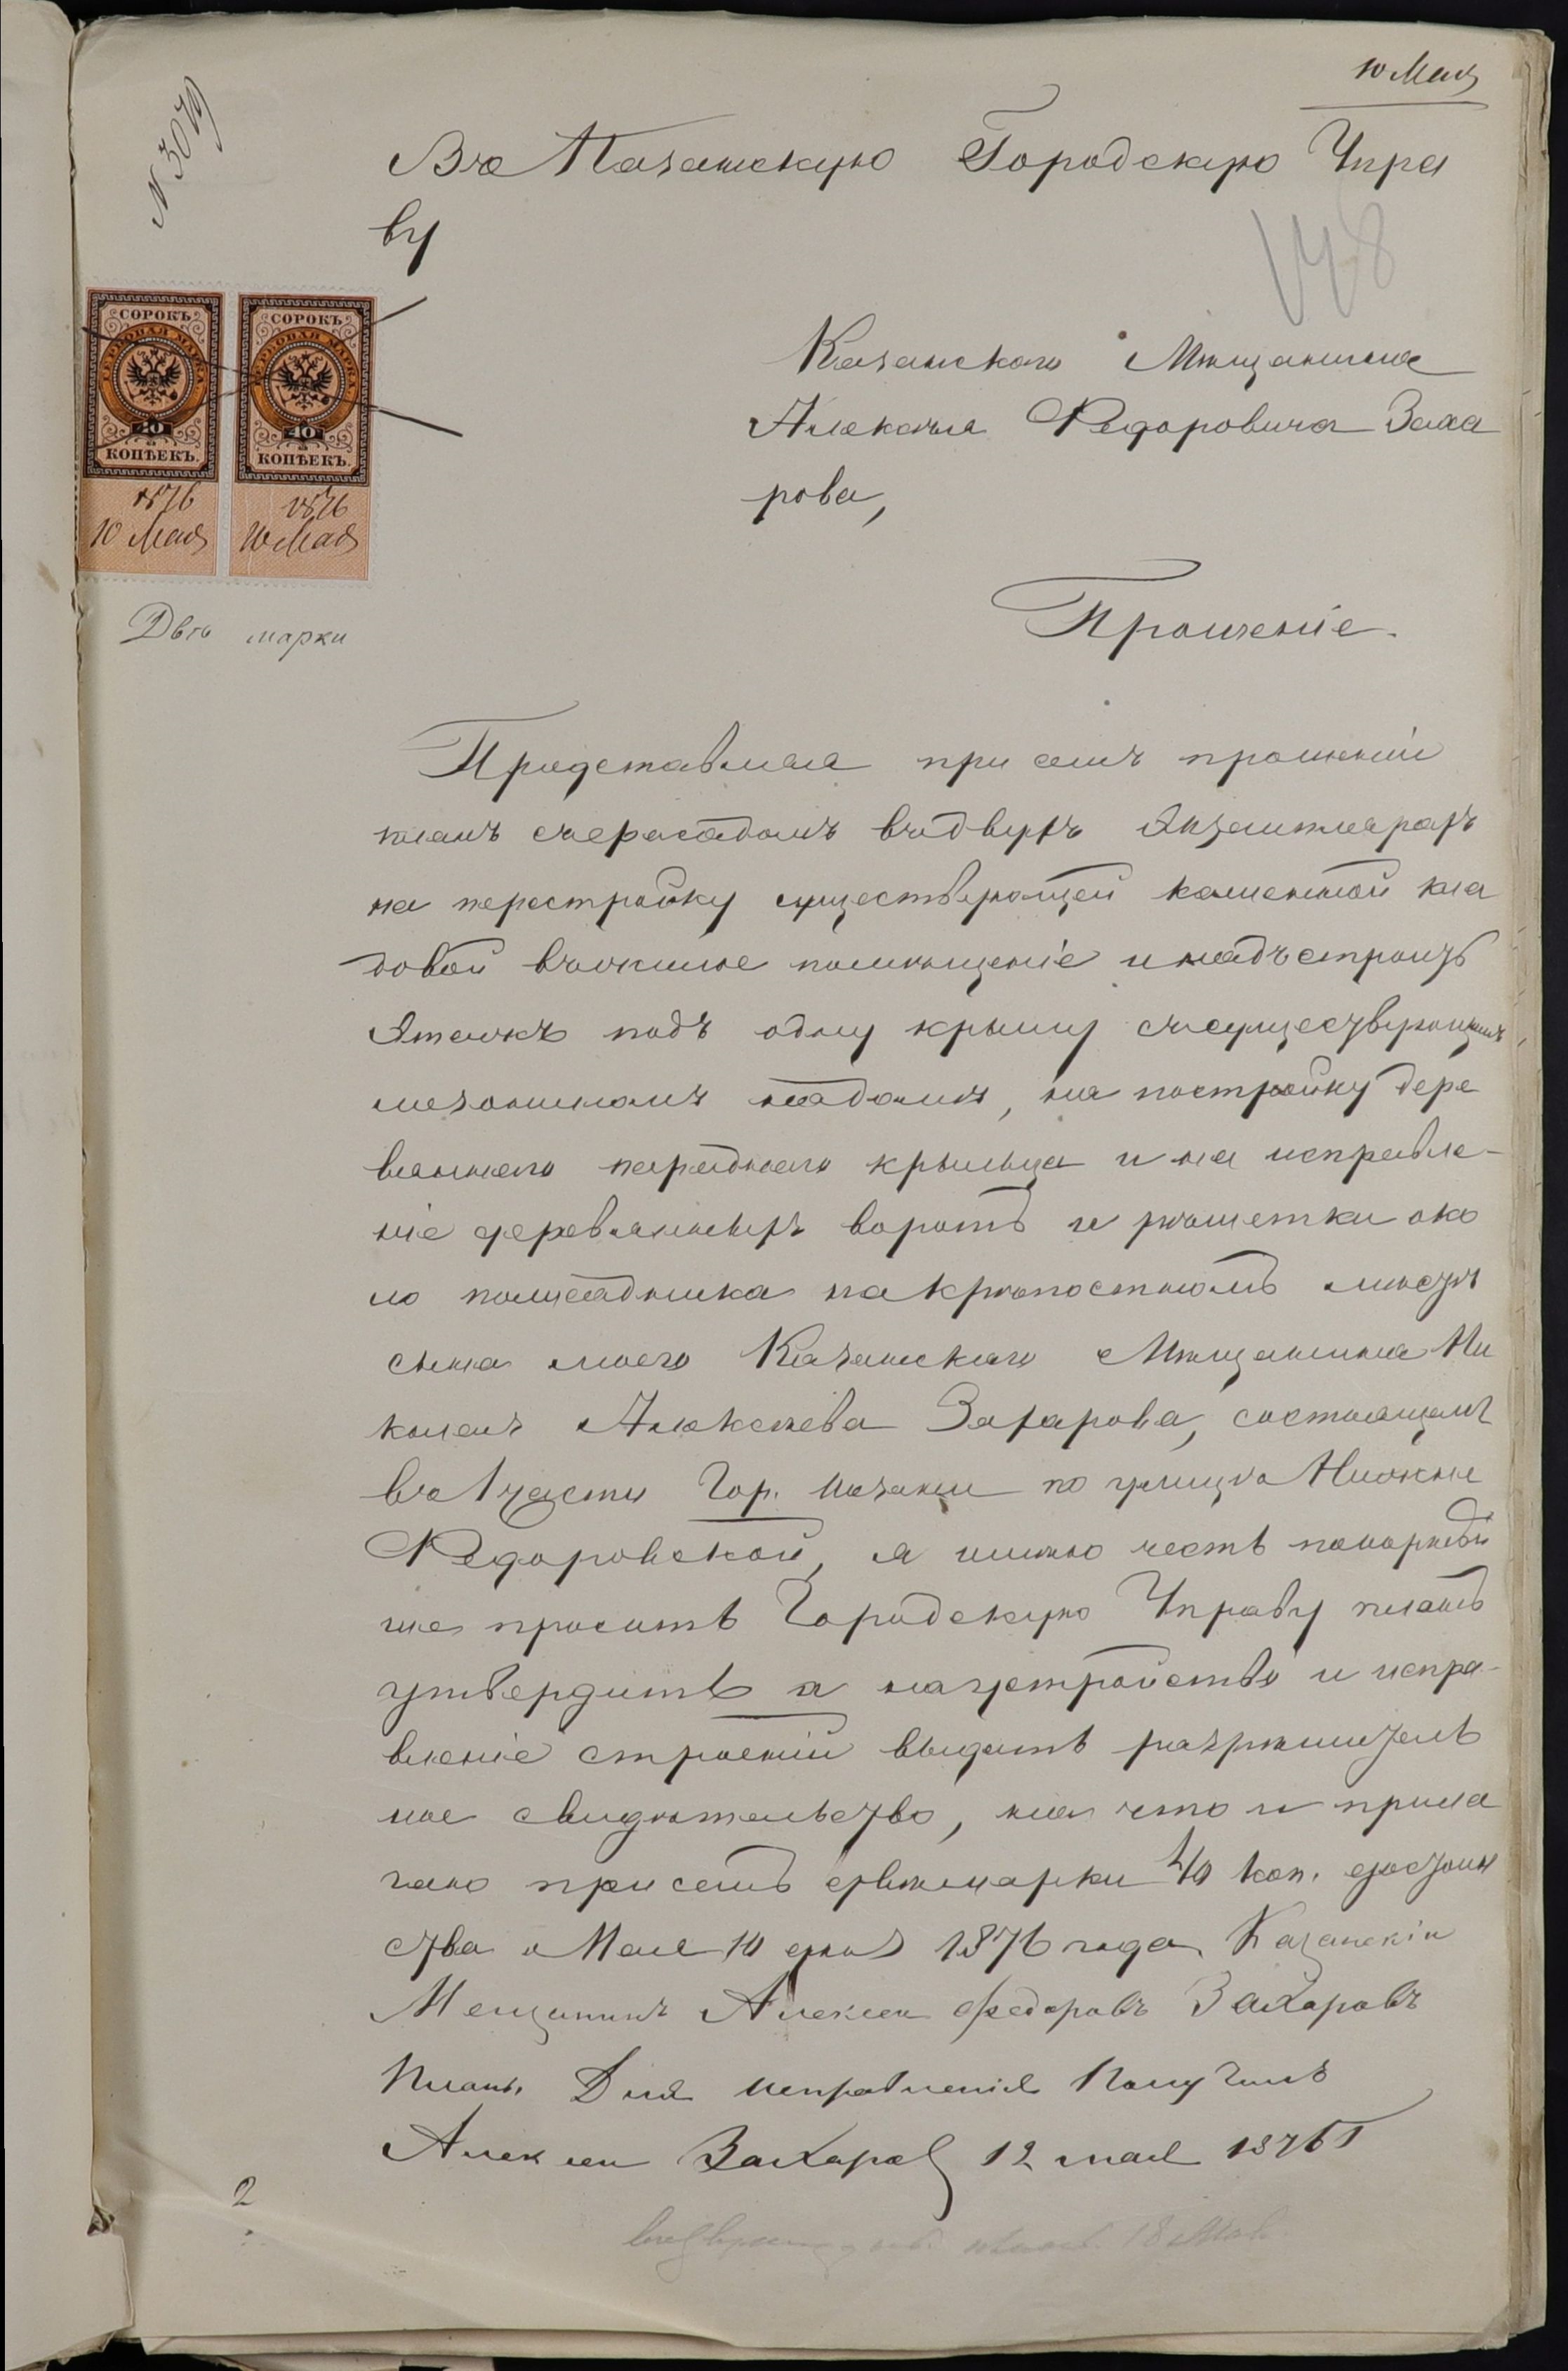 10 Мая
N 3079
Въ Казанскую Городскую Упра
ву
148
СОРОКЪ
ГЕРБОВАЯ МАРКА
40
КОПѢЕКЪ.
1876
10 Мая
СОРОКЪ
ГЕРБОВАЯ МАРКА
40
КОПѢЕКЪ.
1876
10 Мая
Двѣ марки
Казанскаго Мѣщанина
Алексѣя Федоровича Заха
рова,
Прошеніе.
Представляя при семъ прошеніи
планъ съ фасадомъ въ двухъ экземплярахъ
на перестройку существующей каменной кла
довой въ жилое помѣщеніе и надъ строить
Этажъ подъ одну крышу съ существующимъ
мезониномъ надомъ, на постройку дере
вяннаго параднаго крыльца и на исправле-
ніе деревянныхъ воротъ и решетки око
ло полисадника на крѣпостномъ мѣстѣ
сына моего Казанскаго Мѣщанина Ни
колая Алексѣева Захарова, состоящемъ
въ 1 части Гор. Казани по улицѣ Нижне
Федоровской, я имѣю честь покорнѣй
ше просить Городскую Управу планъ
утвердить а на устройство и испра-
вленіе строеній выдать разрѣшитель
ное свидѣтельство, на что и прила
гаю при семъ двѣ марки 40 коп. достоин
ства Мая 10 дня 1876 года. Казанскій
Мещанинъ Алексеи Федоровъ Захаровъ
Планъ Для исправленія Получилъ
Алексеи Захаровъ 12 мая 1876 Г
2
18 Мая